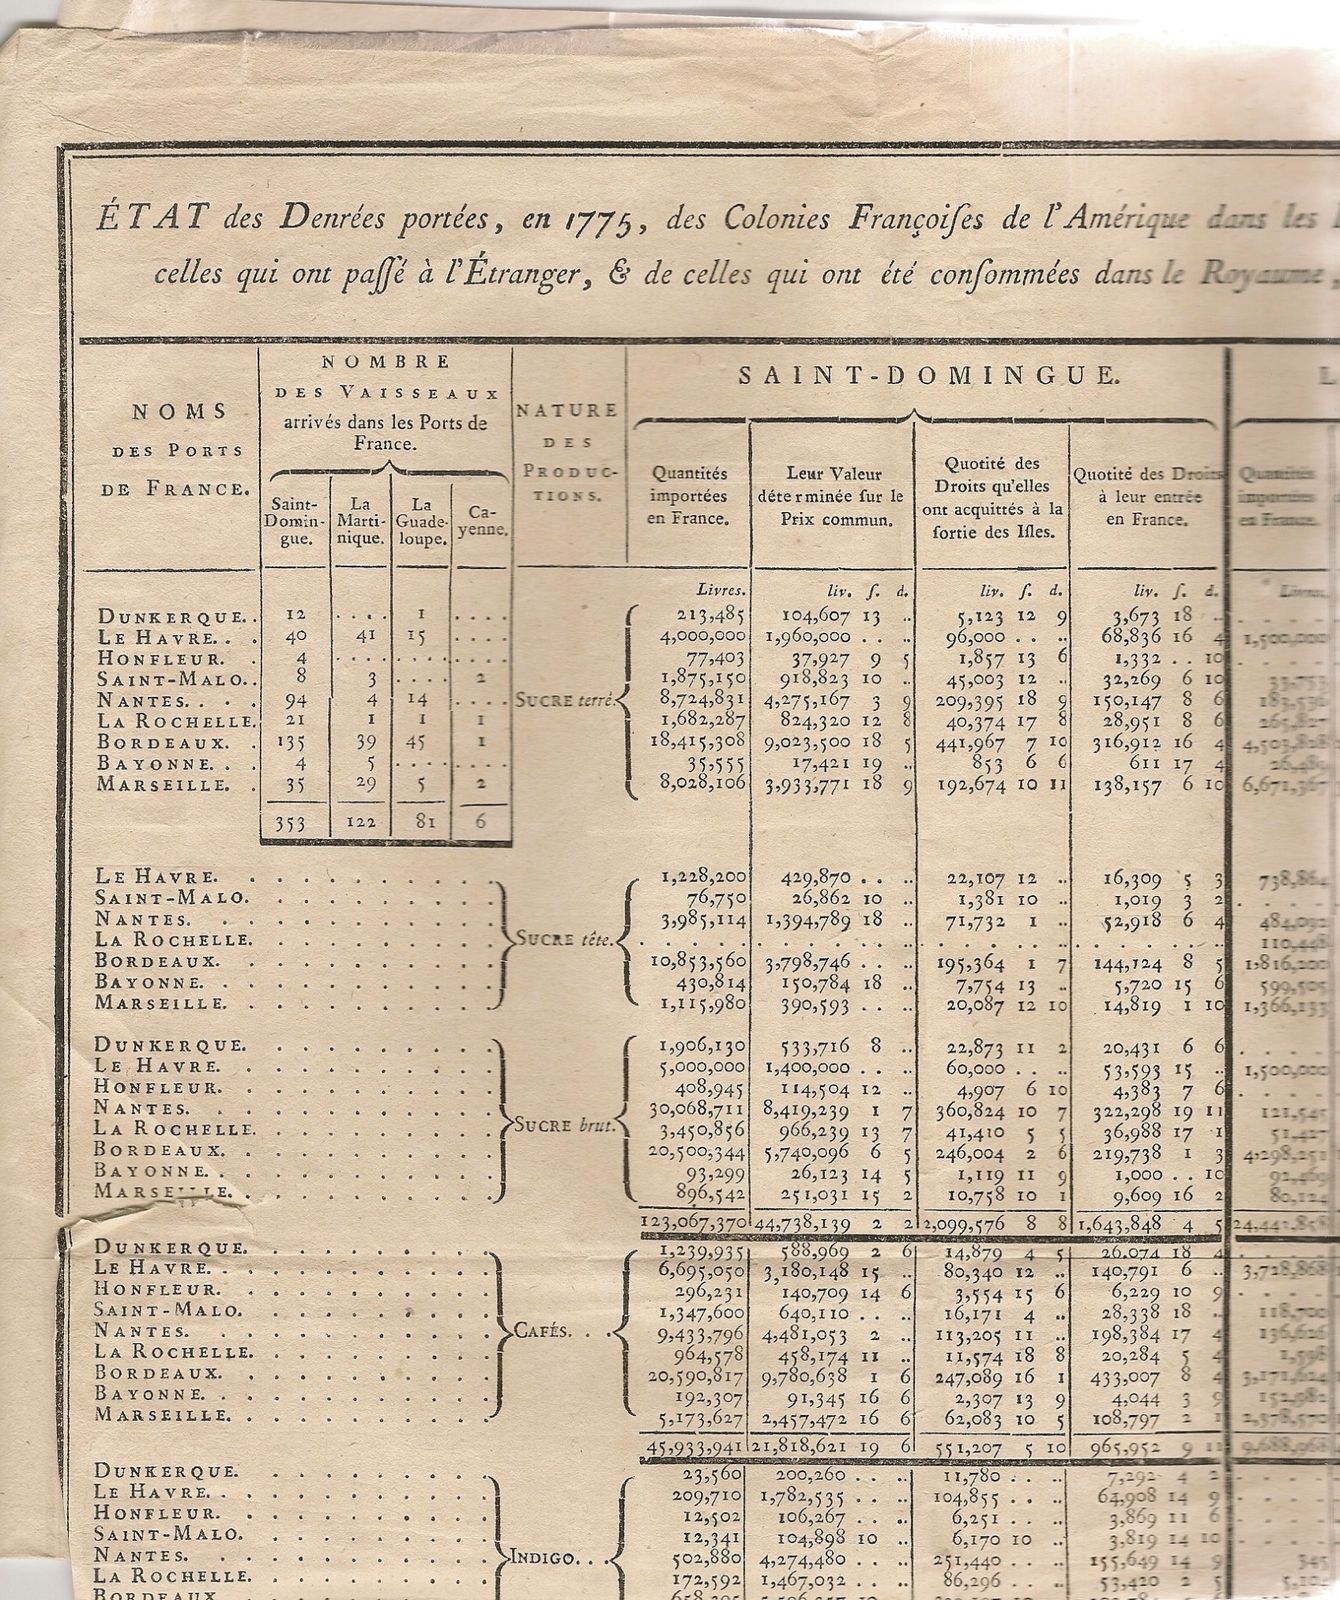 ÉTAT des Denrées portées, en 1775, des Colonies Françoiſes de l'Amérique dans les
celles qui ont paſſé à l'Étranger, & de celles qui ont été conſommées dans le Royaume,
NOMS DES PORTS DE FRANCE.
NOMBRE DES VAISSEAUX arrivés dans les Ports de France.
Saint-Domingue. La Martinique. La Guadeloupe. Cayenne.
NATURE DES PRODUCTIONS.
SAINT-DOMINGUE.
Quantités importées en France.
Leur Valeur déterminée ſur le Prix commun.
Quotité des Droits qu'elles ont acquittés à la ſortie des Iſles.
Quotité des Droits à leur entrée en France.
Quantités importées en France.
Livres. liv. ſ. d. liv. ſ. d. liv. ſ. d. Livres.
DUNKERQUE. . 12 . . . . 1 . . . . 213,485 104,607 13 .. 5,123 12 9 3,673 18 ..
LE HAVRE. . . 40 41 15 . . . . 4,000,000 1,960,000 . . .. 96,000 . . .. 68,836 16 4 1,500,000
HONFLEUR. . 4 . . . . . . . . . . . . 77,403 37,927 9 5 1,857 13 6 1,332 . . 10
SAINT-MALO. . 8 3 . . . . 2 1,875,150 918,823 10 .. 45,003 12 .. 32,269 6 10 33,753
NANTES. . . . 94 4 14 . . . . SUCRE terré. 8,724,831 4,275,167 3 9 209,395 18 9 150,147 8 6 183,536
LA ROCHELLE. 21 1 1 1 1,682,287 824,320 12 8 40,374 17 8 28,951 8 6 265,827
BORDEAUX. . 135 39 45 1 18,415,308 9,023,500 18 5 441,967 7 10 316,912 16 4 4,503,828
BAYONNE. . . 4 5 . . . . . . . . 35,555 17,421 19 .. 853 6 6 611 17 4 26,489
MARSEILLE. . 35 29 5 2 8,028,106 3,933,771 18 9 192,674 10 11 138,157 6 10 6,671,367
353 122 81 6
LE HAVRE. 1,228,200 429,870 . . .. 22,107 12 .. 16,309 5 3 738,864
SAINT-MALO. 76,750 26,862 10 .. 1,381 10 .. 1,019 3 2
NANTES. 3,985,114 1,394,789 18 .. 71,732 1 .. 52,918 6 4 484,092
LA ROCHELLE. SUCRE tête. 110,448
BORDEAUX. 10,853,560 3,798,746 . . .. 195,364 1 7 144,124 8 5 1,816,200
BAYONNE. 430,814 150,784 18 .. 7,754 13 .. 5,720 15 6 599,505
MARSEILLE. 1,115,980 390,593 . . .. 20,087 12 10 14,819 1 10 1,366,133
DUNKERQUE. 1,906,130 533,716 8 .. 22,873 11 2 20,431 6 6
LE HAVRE. 5,000,000 1,400,000 . . .. 60,000 . . .. 53,593 15 .. 1,500,000
HONFLEUR. 408,945 114,504 12 .. 4,907 6 10 4,383 7 6
NANTES. 30,068,711 8,419,239 1 7 360,824 10 7 322,298 19 11 121,545
LA ROCHELLE. SUCRE brut. 3,450,856 966,239 13 7 41,410 5 5 36,988 17 1 51,427
BORDEAUX. 20,500,344 5,740,096 6 5 246,004 2 6 219,738 1 3 4,298,251
BAYONNE. 93,299 26,123 14 5 1,119 11 9 1,000 . . 10 92,469
MARSEILLE. 896,542 251,031 15 2 10,758 10 1 9,609 16 2 80,124
123,067,370 44,738,139 2 2 2,099,576 8 8 1,643,848 4 5 24,441,858
DUNKERQUE. 1,239,935 588,969 2 6 14,879 4 5 26,074 18 4
LE HAVRE. 6,695,050 3,180,148 15 .. 80,340 12 .. 140,791 6 .. 3,728,868
HONFLEUR. 296,231 140,709 14 6 3,554 15 6 6,229 10 9
SAINT-MALO. 1,347,600 640,110 . . .. 16,171 4 .. 28,338 18 .. 118,700
NANTES. CAFÉS. . . 9,433,796 4,481,053 2 .. 113,205 11 .. 198,384 17 4 136,626
LA ROCHELLE. 964,578 458,174 11 .. 11,574 18 8 20,284 5 4 1,598
BORDEAUX. 20,590,817 9,780,638 1 6 247,089 16 1 433,007 8 4 3,171,624
BAYONNE. 192,307 91,345 16 6 2,307 13 9 4,044 3 9 152,982
MARSEILLE. 5,173,627 2,457,472 16 6 62,083 10 5 108,797 2 1 2,378,570
45,933,941 21,818,621 19 6 551,207 5 10 965,952 9 11 9,688,968
DUNKERQUE. 23,560 200,260 . . .. 11,780 . . .. 7,292 4 2
LE HAVRE. 209,710 1,782,535 . . .. 104,855 . . .. 64,908 14 9
HONFLEUR. 12,502 106,267 . . .. 6,251 . . .. 3,869 11 6
SAINT-MALO. 12,341 104,898 10 .. 6,170 10 .. 3,819 14 10
NANTES. INDIGO. . . 502,880 4,274,480 . . .. 251,440 . . .. 155,649 14 9 345
LA ROCHELLE. 172,592 1,467,032 . . .. 86,296 . . .. 53,420 2 5
BORDEAUX.